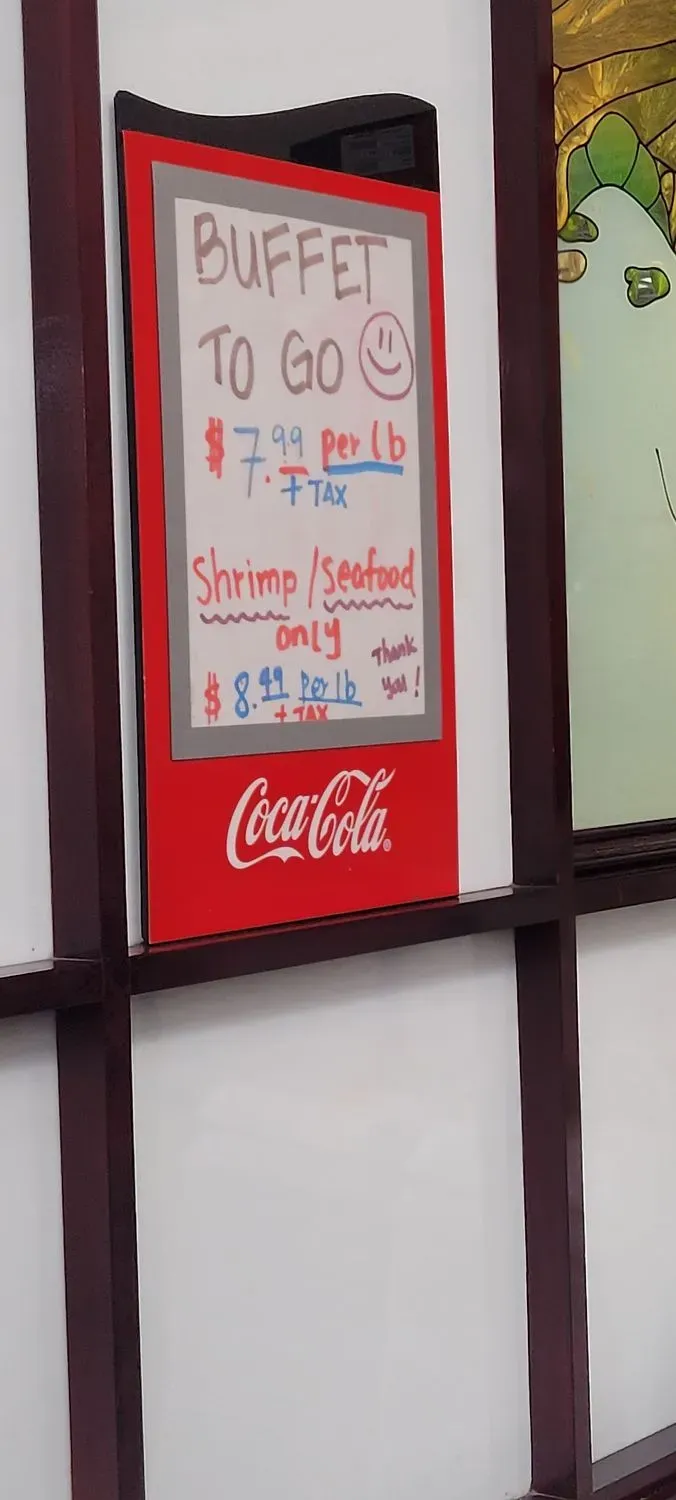 BUFFET
TO GO
$ 7.99 per lb
+ TAX
Shrimp / Seafood
only
$ 8.99 per lb
+ TAX
Thank
You!
Coca-Cola®